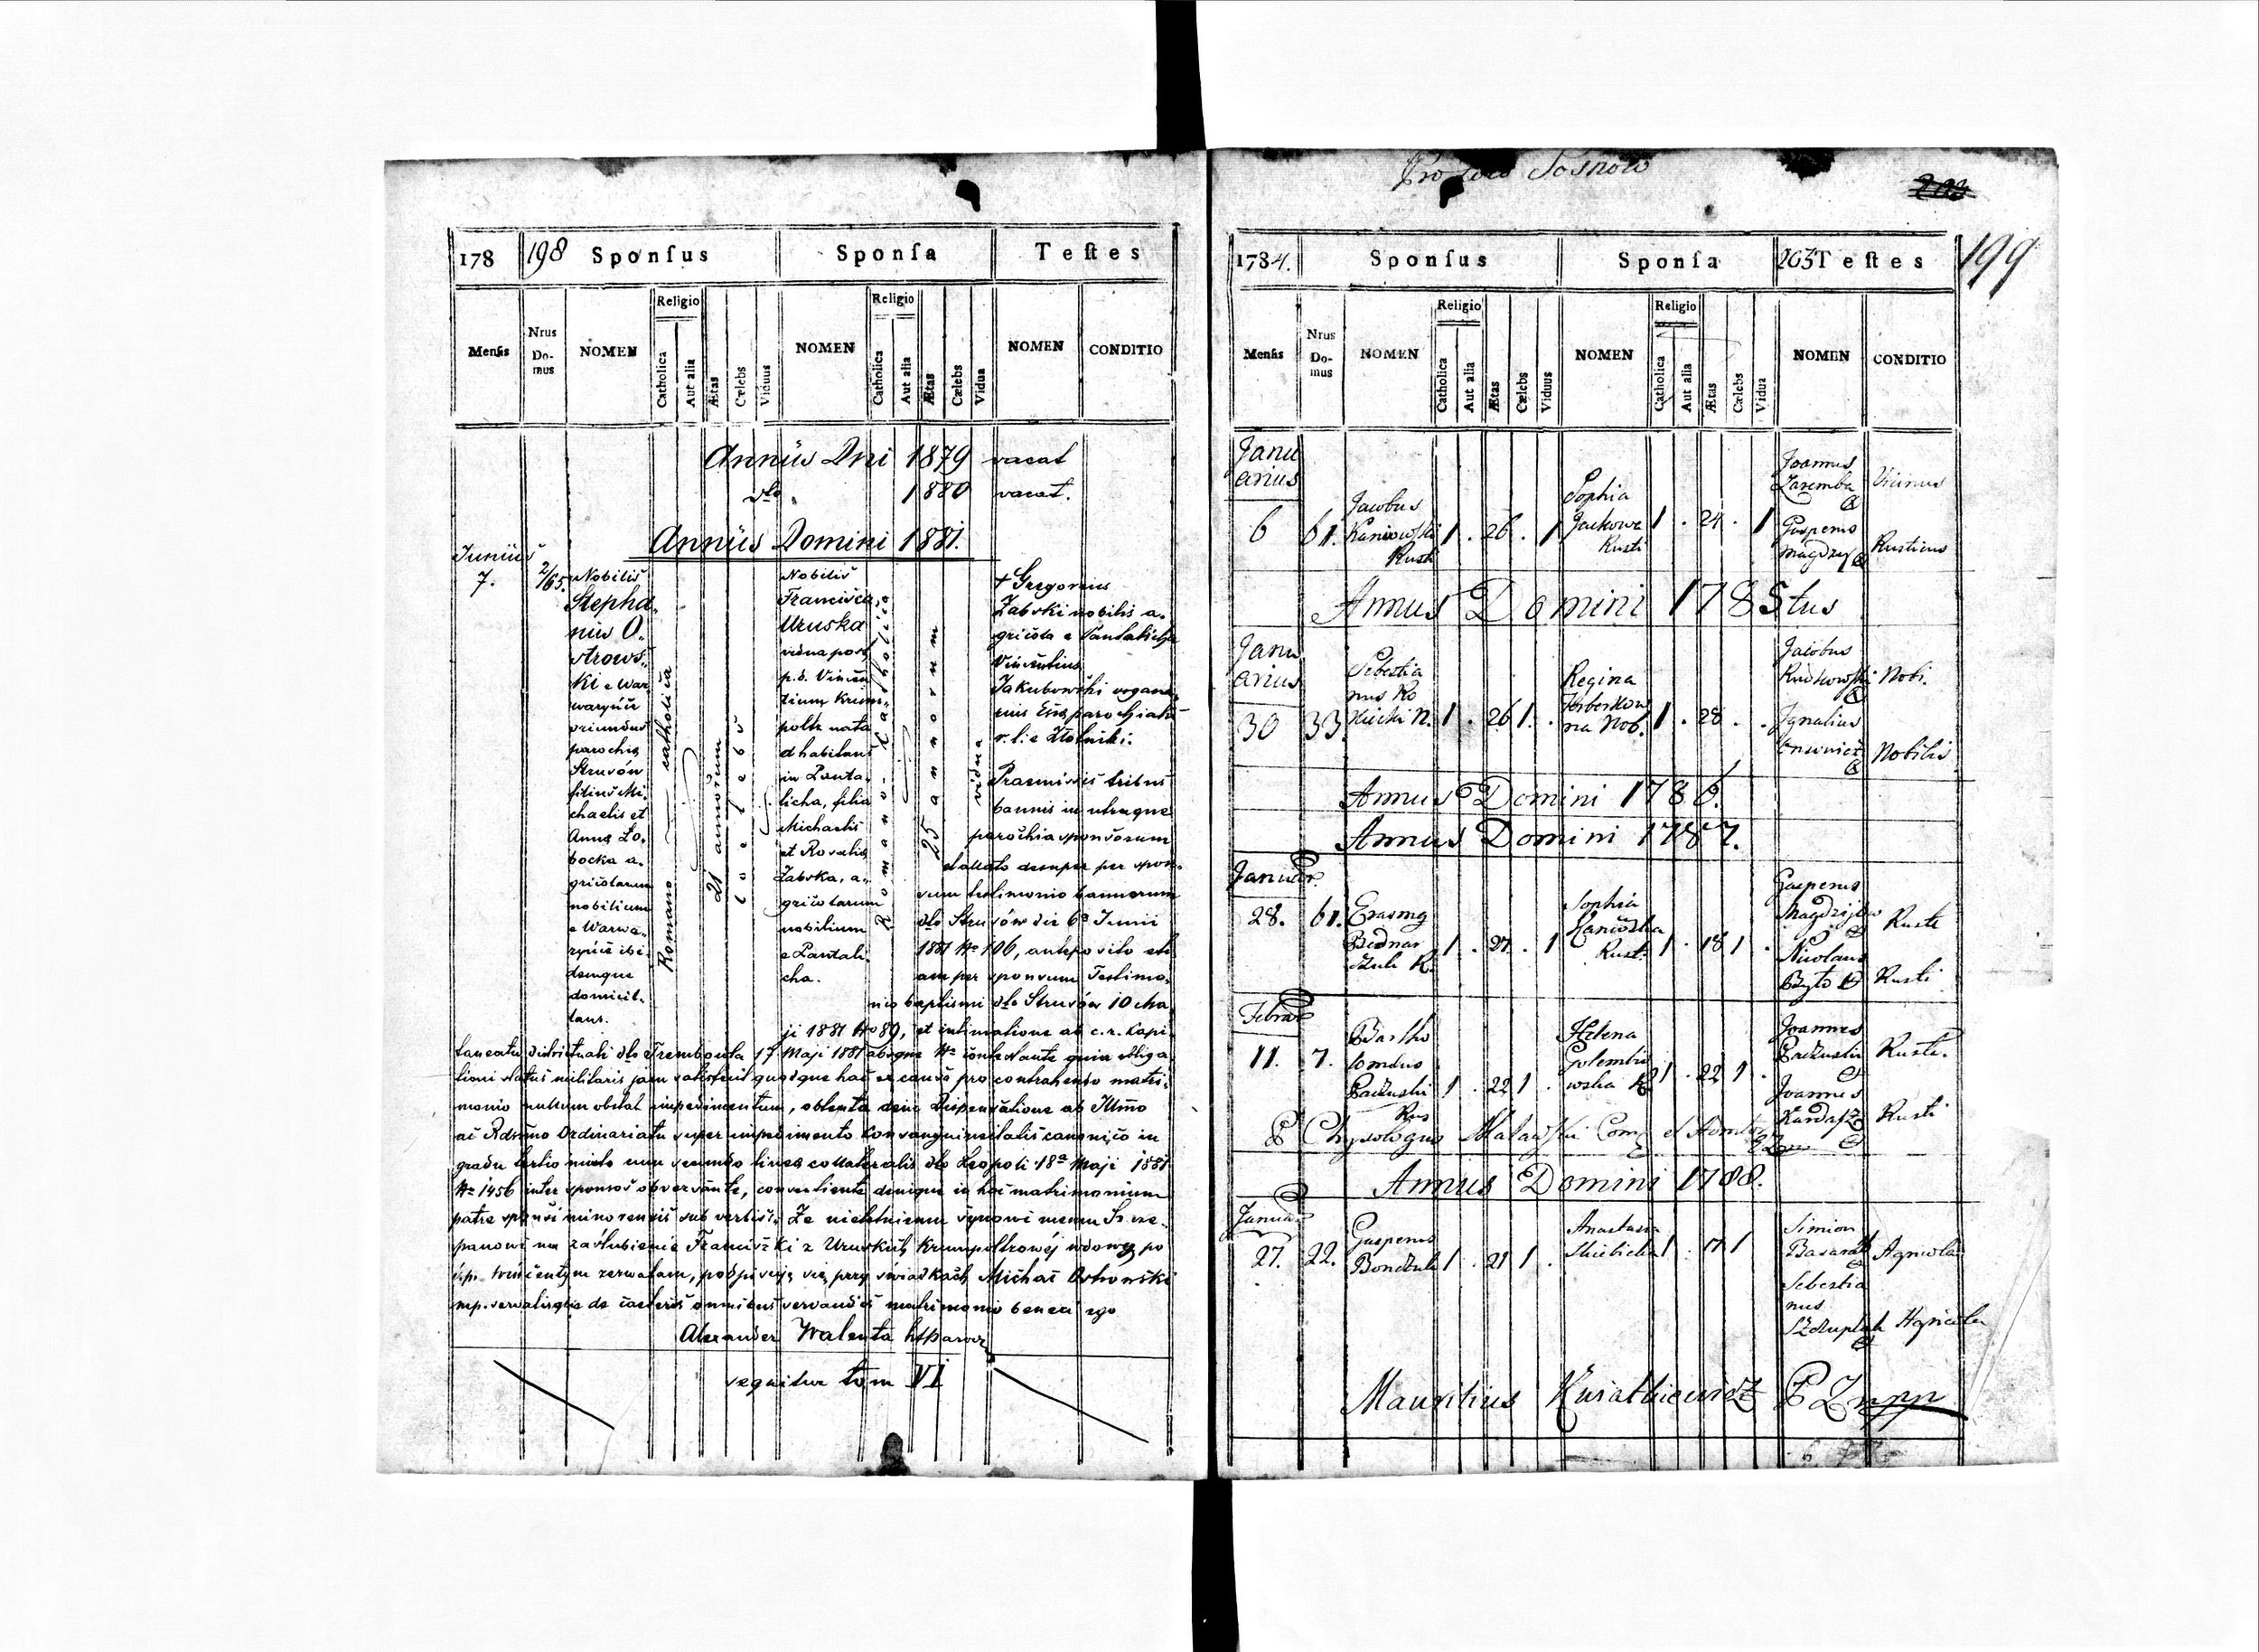 178 198 Sponſus Sponſa Teſtes
Menſis Nrus Domus NOMEN Religio Catholica Aut alia Ætas Cælebs Viduus NOMEN Religio Catholica Aut alia Ætas Cælebs Vidua NOMEN CONDITIO
Annus Dni 1879 vacat
dto 1880 vacat.
Annus Domini 1881.
Junius
7.
2/65.
Nobilis
Stepha-
nus O-
strows-
ki e War
waryńce
oriundus
parochia
Strusów
filius Mi-
chaelis et
Anna Ło-
bocka a-
gricolarum
nobilium
e Warwa-
ryńce ibi-
demque
domicil-
tans.
Romano catholica
21 annorum
coelebs
Nobilis
Francisca
Uruska
vidua post
p.d. Vincen
tium Krum-
poltz nata
et habitans
in Panta-
licha, filia
Michaelis
et Rosalia
Zabska, a-
gricolarum
nobilium
e Pantali-
cha.
Romano catholica
25 annorum
vidua
+ Gregorius
Zabski nobilis a-
gricola e Pantalicha
Vincentius
Jakubowski organa-
rius Eccl. parochialis
r. l. e Złotniki.
Praemissis tribus
bannis in utraque
parochia sponsorum
allato desuper per spon-
sum testimonio bannorum
dto Strusów die 6a Junii
1881 No 106, anteposito eti
am per sponsum Testimo-
nio baptismi dto Strusów 10 Ma
ji 1881 No 89, et intimatione ab c. r. Capi
taneatu districtuali dto Trembowla 17 Maji 1881 absque No constante quia obliga
tioni status militaris jam satisfecit quodque hac ex causa pro contrahendo matri-
monio nullum obstat impedimentum, obtenta dein Dispensatione ab Illmo
ac Rdssmo Ordinariatu super impedimento consanguinitatis canonico in
gradu tertio mixto cum secundo linea collateralis dto Leopoli 18a Maji 1881
No 1456 inter sponsos obversante, consentiente denique in hoc matrimonium
patre sponsi minorensis sub verbis: Że nieletniemu synowi memu Szcze-
panowi na zaślubienie Franciszki z Uruskich Krumpoltzowéj wdowy po
ś.p. Wincentym zezwalam, podpisuję się przy świadkach Michał Ostrowski
mp. servatisque de caeteris omnibus servandis matrimonio benedixi ego
Alexander Walenta
sequitur tom VI
Pro Sosnow
203
199
1784. Sponſus Sponſa 203 Teſtes
Menſis Nrus Domus NOMEN Religio Catholica Aut alia Ætas Cælebs Viduus NOMEN Religio Catholica Aut alia Ætas Cælebs Vidua NOMEN CONDITIO
Janu
arius
6 61. Jacobus
Kaniowski
Rusti
1 . 26 . 1
Sophia
Jackowa
Rusti
1 . 24 . 1
Joannes
Zaremba
Vicinus
Gasperus
Magdzy
Rusticus
Annus Domini 1785tus
Janu
arius
30 33.
Sebestia
nus Ko
N. 1 . 26 1 .
Regina
na Nob. 1 . 28 . .
Jacobus
Rudkowski Nobi.
Ignatius
Nobilis
Annus Domini 1786.
Annus Domini 1787.
Januar
28. 61. Erasmg
Bednar
R. 1 . 27 . 1
Sophia
Kaniowska
Rusti 1 . 18 1 .
Gasperus
Magdzijow
Rusti
Nicolaus
Byto
Rusti
Febra
11. 7. Bartho
lomæus
Paczuski
Rus
1 . 22 1 .
Helena
Golembio
wska R 1 . 22 1 .
Joannes
Paczuski
Rusti.
Joannes
Kardasz
Rusti
P Chrysologus Com et
Annus Domini 1788.
Januar
27. 22. Gasperus
1 . 21 1 .
Anastasia
1 . 17 1
Simion
Basarab
Agricola
Sebestia
nus
Agricola
Mauritius Kwiatkiewicz